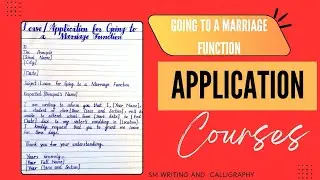 Leave/Application for Going to
a Marriage Function
To
The Principal
[School Name]
[City]
[Date]
Subject: Leave for Going to a Marriage Function
Respected [Principal's Name]
I am writing to inform you that I, [Your Name],
a student of class [Your Class and Section], will be
unable to attend school from [start date] to [End
Date] due to my sister's wedding in [Location].
I kindly request that you to grant me leave
for these days.
Thank you for your understanding.
Yours sincerely,
[Your Full Name]
[Your Class and Section]
GOING TO A MARRIAGE
FUNCTION
APPLICATION
Courses
SM WRITING AND CALLIGRAPHY